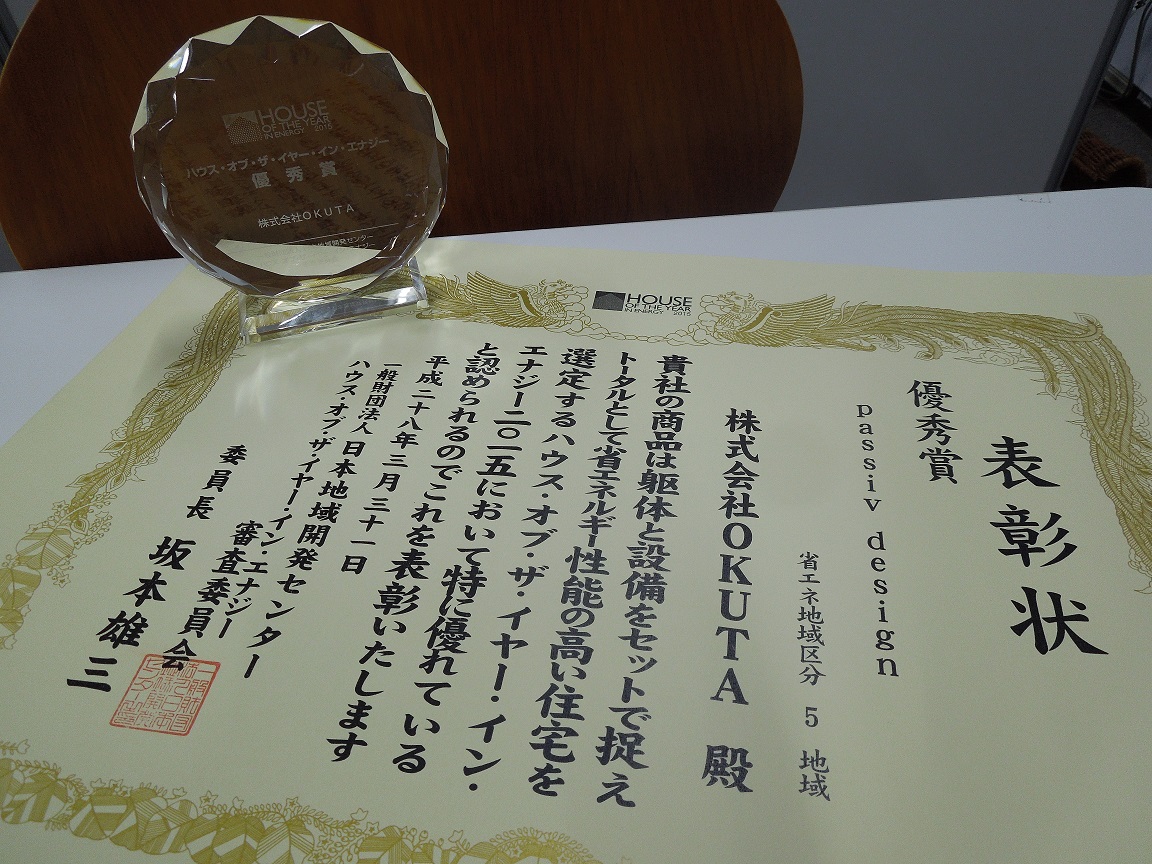 HOUSE
OF THE YEAR
IN ENERGY 2015
ハウス・オブ・ザ・イヤー・イン・エナジー
優秀賞
株式会社OKUTA
地域開発センター
HOUSE
OF THE YEAR
IN ENERGY 2015
表彰状
優秀賞
passiv design
省エネ地域区分 5 地域
株式会社OKUTA 殿
貴社の商品は躯体と設備をセットで捉え
トータルとして省エネルギー性能の高い住宅を
選定するハウス・オブ・ザ・イヤー・イン・
エナジー二〇一五において特に優れている
と認められるのでこれを表彰いたします
平成二十八年三月三十一日
一般財団法人 日本地域開発センター
ハウス・オブ・ザ・イヤー・イン・エナジー
審査委員会
委員長 坂本雄三